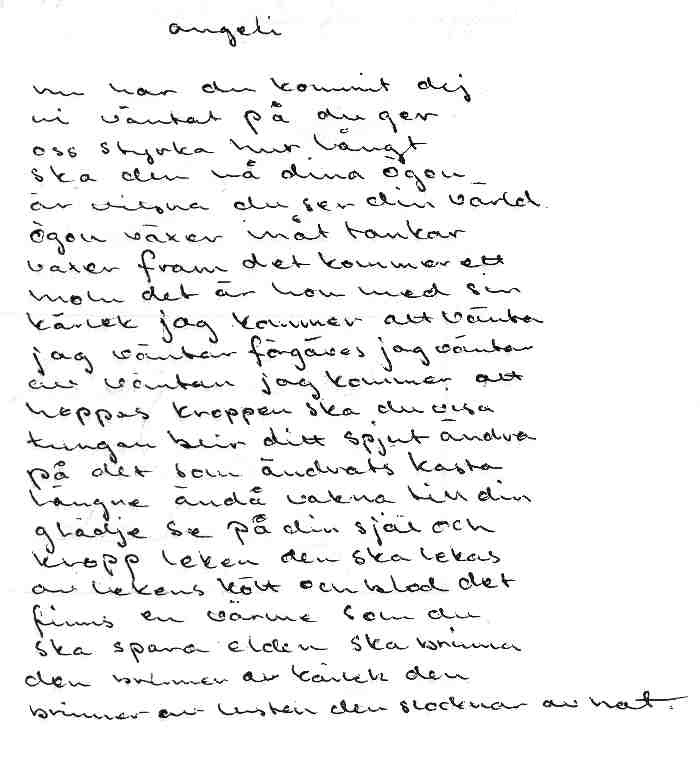 angeli
nu har du kommit dej
vi väntat på du ger
oss styrka hur långt
ska den nå dina ögon
är vilsna du ser din värld
ögon växer inåt tankar
växer fram det kommer ett
moln det är hon med sin
kärlek jag kommer att vänta
jag väntar förgäves jag väntar
av väntan jag kommer att
hoppas kroppen ska du visa
tungan blir ditt spjut ändra
på det som ändrats kasta
längre ändå vakna till din
glädje se på din själ och
kropp leken den ska lekas
av lekens kött och blod det
finns en värme som du
ska spara elden ska brinna
den brinner av kärlek den
brinner av lusten den slocknar av hat.